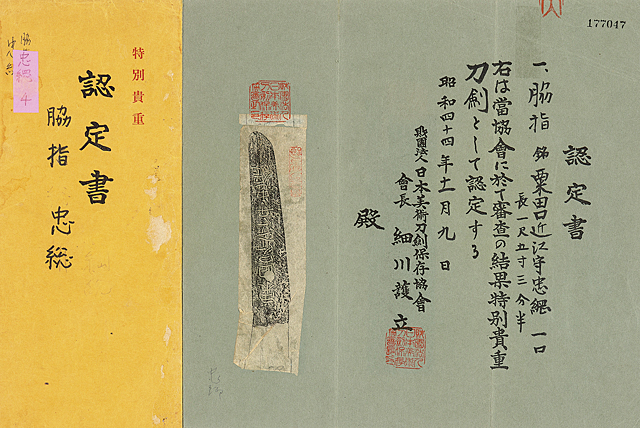 177047
認定書
一、脇指 銘 粟田口近江守忠綱 一口
長一尺五寸三分半
右は當協會に於て審査の結果特別貴重
刀剣として認定する
昭和四十四年十一月九日
財團法人日本美術刀剣保存協會
會長 細川護立
殿
特別貴重
認定書
脇指 忠総
忠綱 4